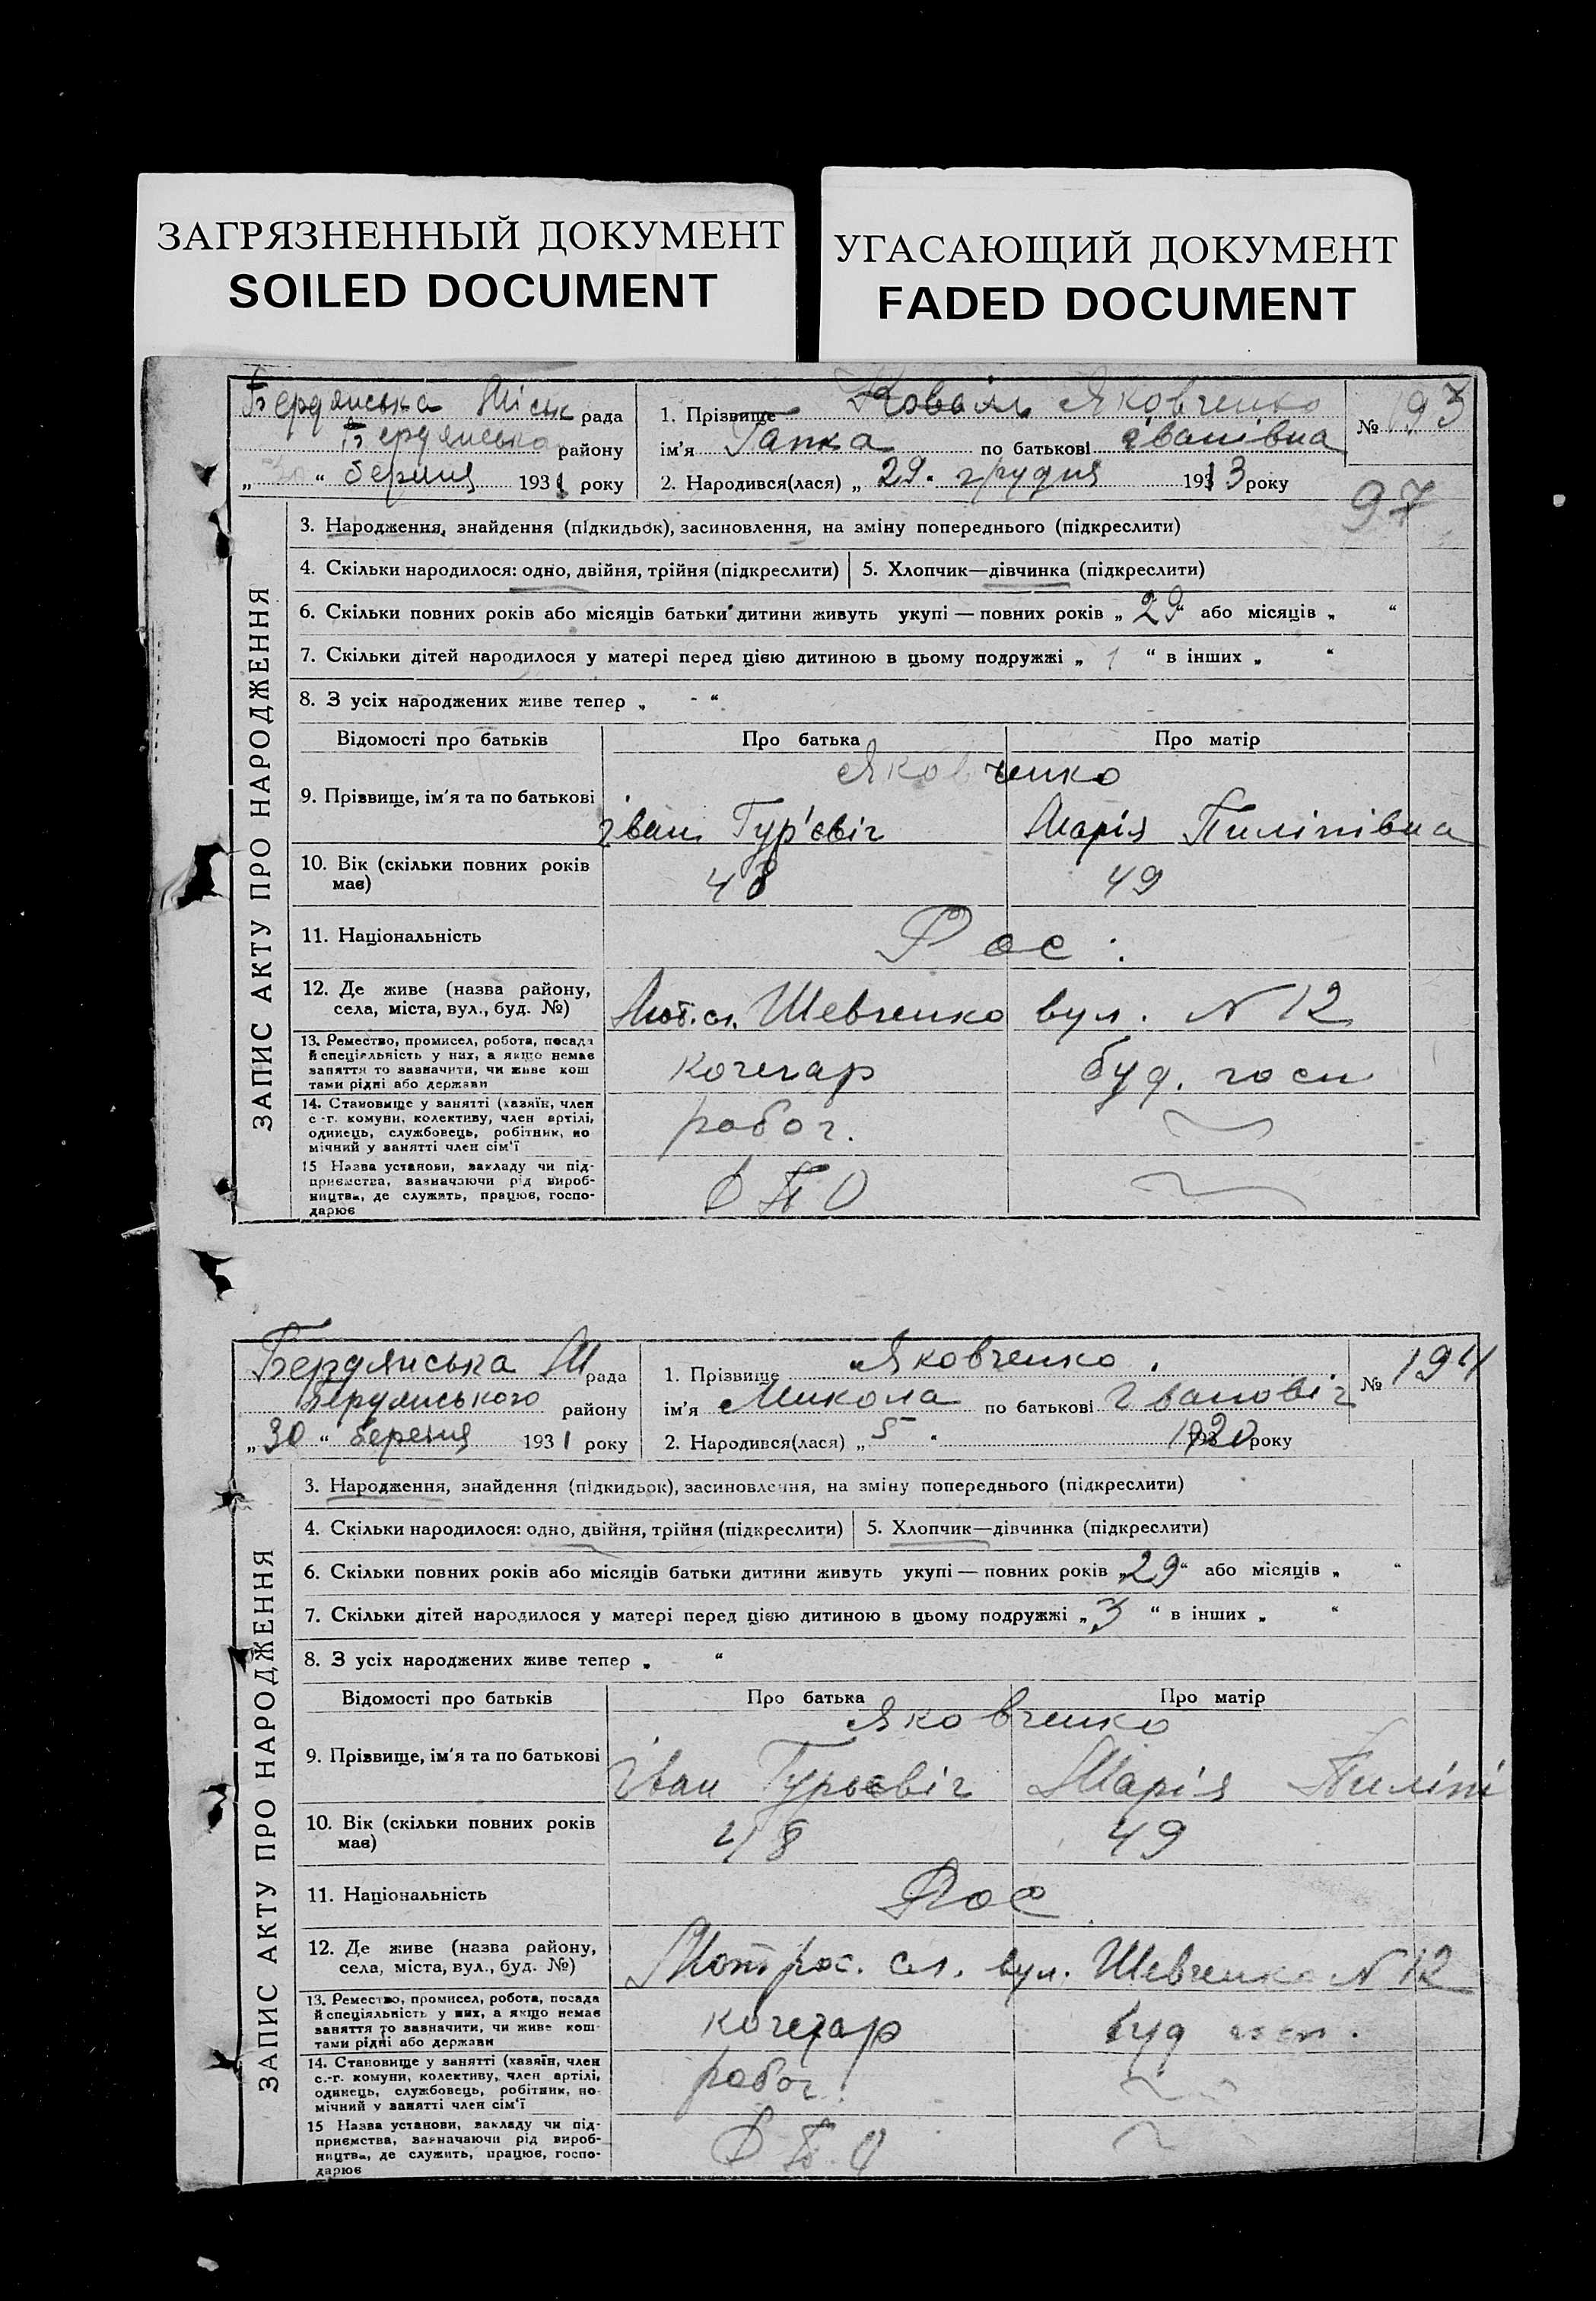 ЗАГРЯЗНЕННЫЙ ДОКУМЕНТ
SOILED DOCUMENT
УГАСАЮЩИЙ ДОКУМЕНТ
FADED DOCUMENT
ЗАПИС АКТУ ПРО НАРОДЖЕННЯ
Бердянська Міськ рада
Бердянська району
„30“ берня 1931 року
1. Прізвище Коваль Яковченко
ім'я Гапка по батькові Іванівна
2. Народився(лася) „29. грудня 1913 року
№ 193
97
3. Народження, знайдення (підкидьок), засиновлення, на зміну попереднього (підкреслити)
4. Скільки народилося: одно, двійня, трійня (підкреслити) 5. Хлопчик—дівчинка (підкреслити)
6. Скільки повних років або місяців батьки дитини живуть укупі — повних років „29“ або місяців „ “
7. Скільки дітей народилося у матері перед цією дитиною в цьому подружжі „1“ в інших „ “
8. З усіх народжених живе тепер „ - “
Відомості про батьків Про батька Про матір
Яковченко
9. Прізвище, ім'я та по батькові Іван Гур'євіч Марія Пиліпівна
10. Вік (скільки повних років має) 48 49
11. Національність Рос:
12. Де живе (назва району, села, міста, вул., буд. №) сл. Шевченко вул. N 12
13. Ремество, промисел, робота, посада й спеціяльність у них, а якщо немає заняття то зазначити, чи живе кош тами рідні або держави кочегар буд. госп
14. Становище у занятті (хазяїн, член с.-г. комуни, колективу, член артілі, одинець, службовець, робітник, по мічний у занятті член сім'ї робоч.
15 Назва установи, закладу чи підприємства, зазначаючи рід виробництва, де служить, працює, господарює
ЗАПИС АКТУ ПРО НАРОДЖЕННЯ
Бердянська М рада
Бердянського району
„30“ береня 1931 року
1. Прізвище Яковченко.
ім'я Микола по батькові Івановіч
2. Народився(лася) „5“ 1920 року
№ 194
3. Народження, знайдення (підкидьок), засиновлення, на зміну попереднього (підкреслити)
4. Скільки народилося: одно, двійня, трійня (підкреслити) 5. Хлопчик—дівчинка (підкреслити)
6. Скільки повних років або місяців батьки дитини живуть укупі — повних років „29“ або місяців „ “
7. Скільки дітей народилося у матері перед цією дитиною в цьому подружжі „3“ в інших „ “
8. З усіх народжених живе тепер „ “
Відомості про батьків Про батька Про матір
Яковченко
9. Прізвище, ім'я та по батькові Іван Гурьєвіч Марія Пиліпі
10. Вік (скільки повних років має) 48 49
11. Національність Рос
12. Де живе (назва району, села, міста, вул., буд. №) сл. вул. Шевченко N 12
13. Ремество, промисел, робота, посада й спеціяльність у них, а якщо немає заняття то зазначити, чи живе кош- тами рідні або держави кочегар буд госп.
14. Становище у занятті (хазяїн, член с.-г. комуни, колективу, член артілі, одинець, службовець, робітник, по- мічний у занятті член сім'ї робоч.
15 Назва установи, закладу чи підприємства, зазначаючи рід виробництва, де служить, працює, господарює